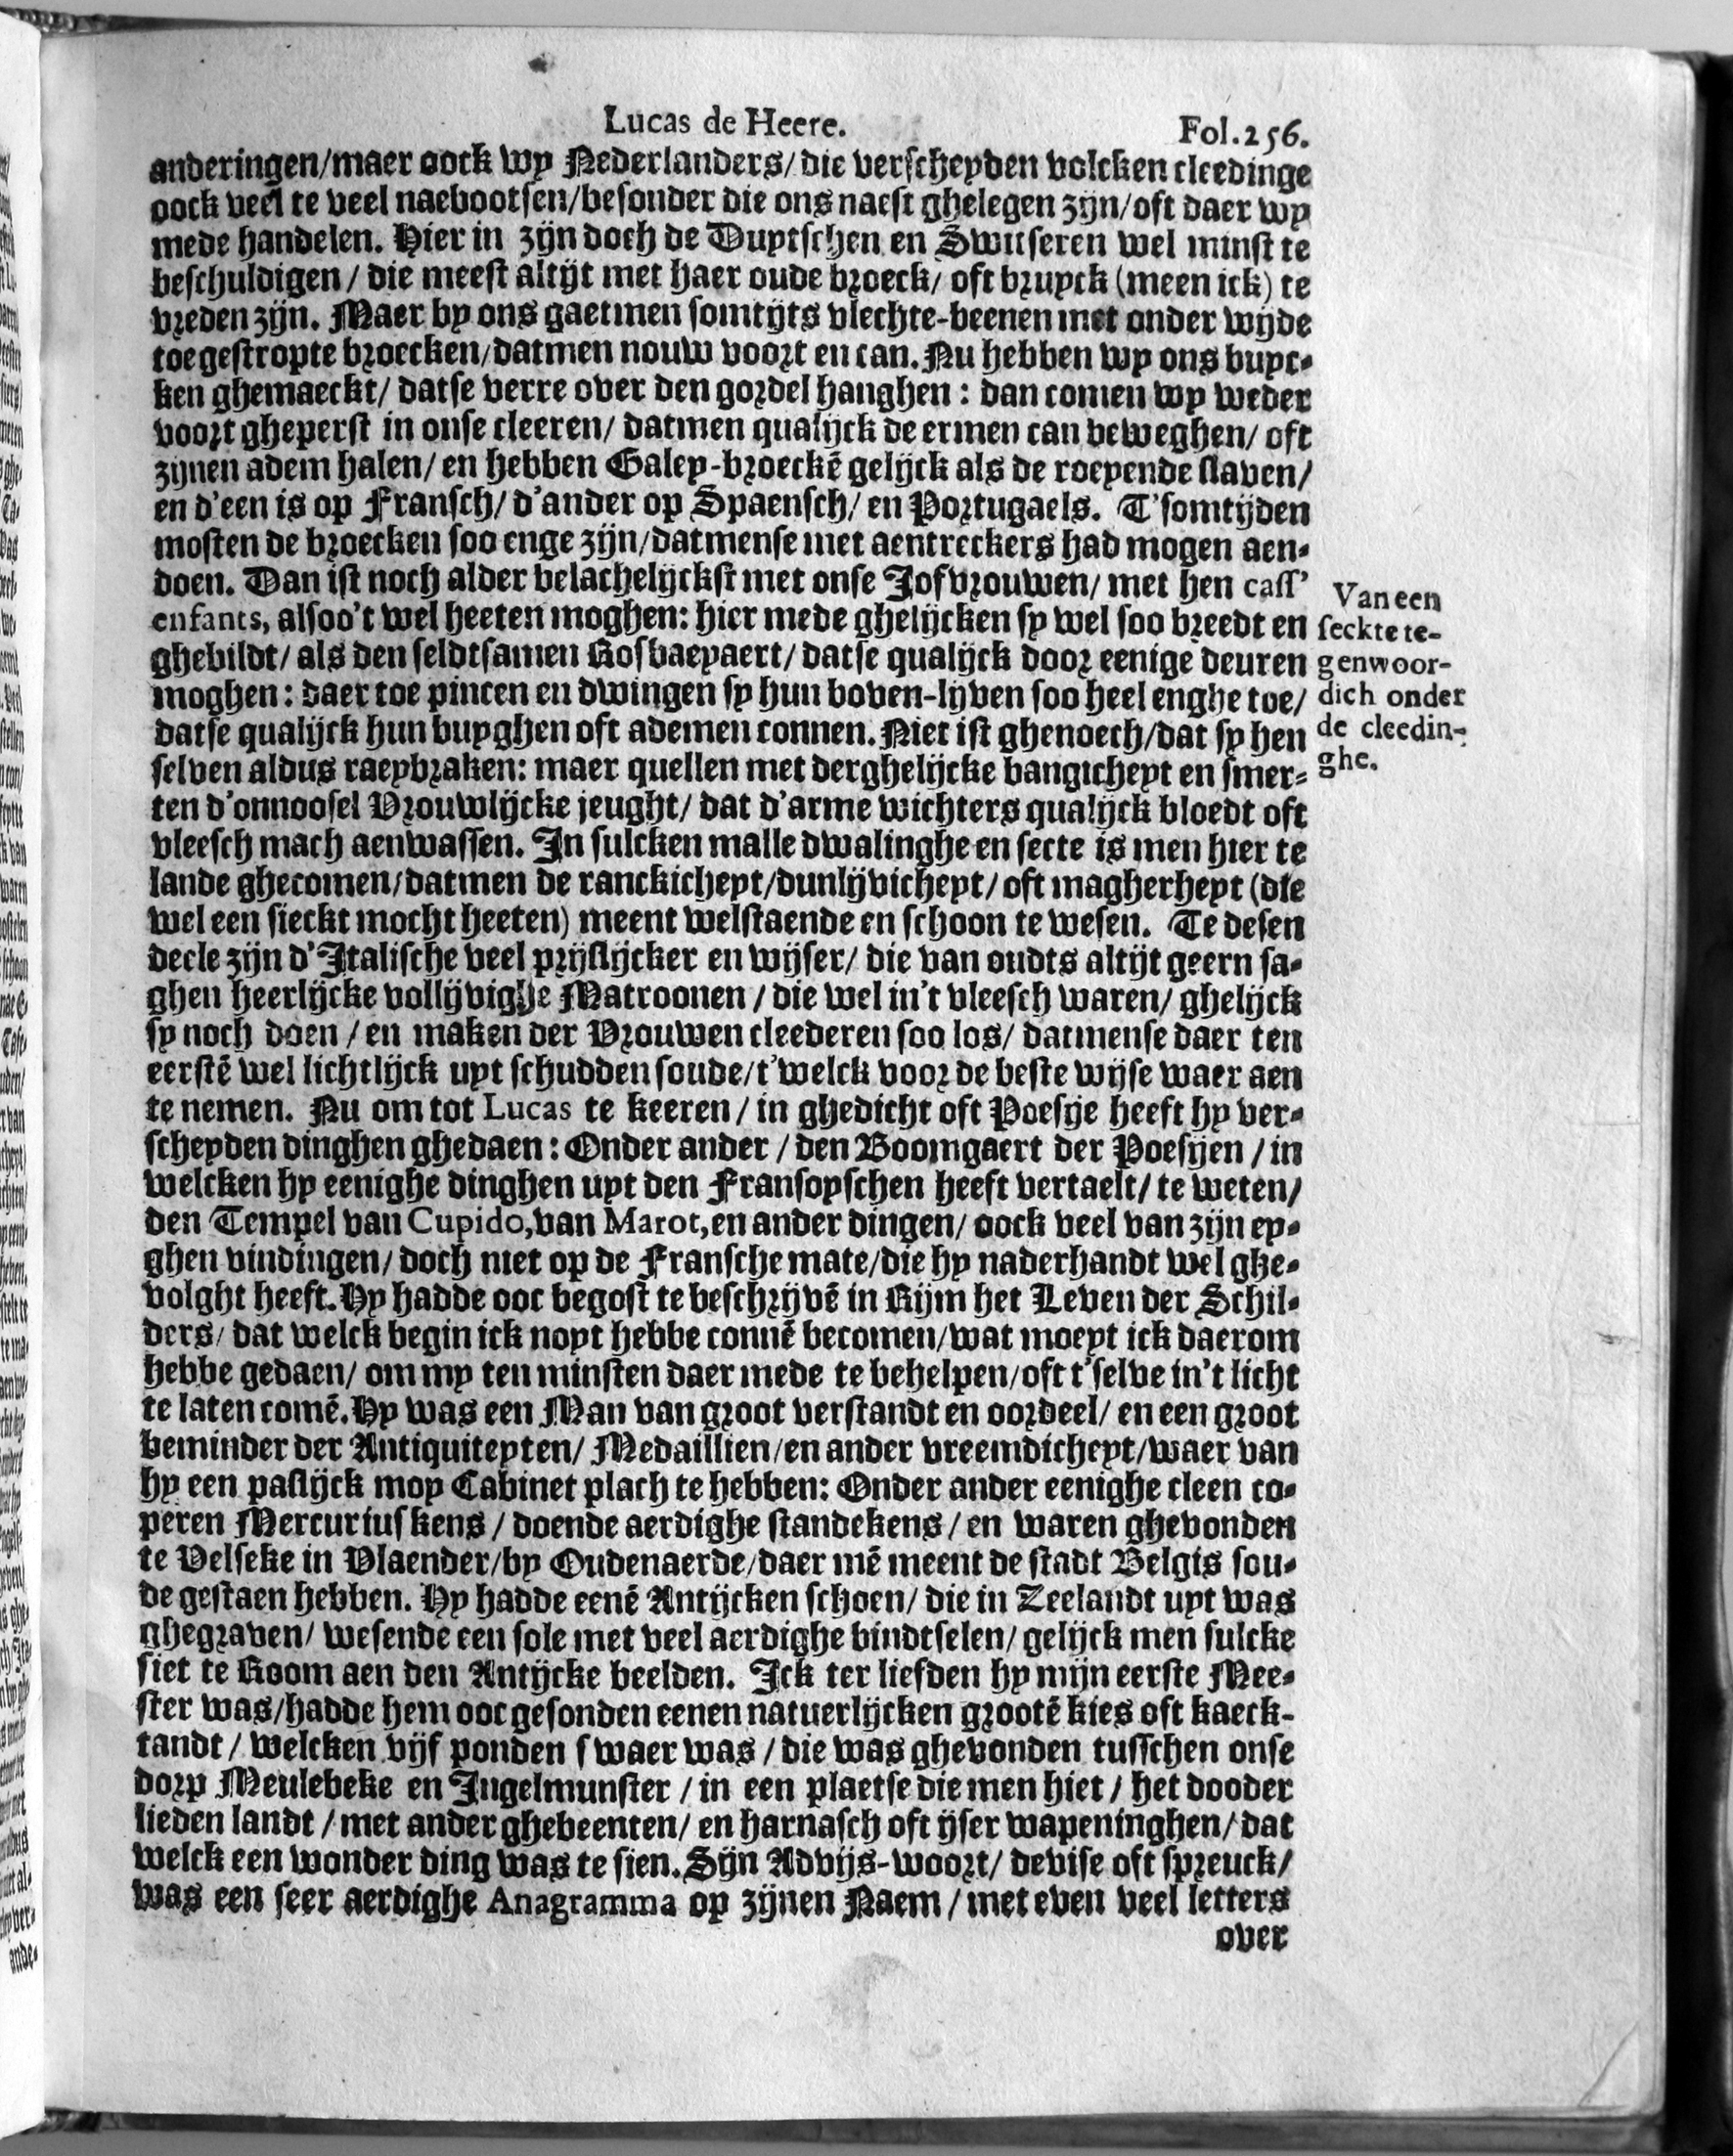 Lucas de Heere. Fol.256.
anderingen/maer oock wy Nederlanders/die verscheyden volcken cleedinge
oock veel te veel naebootsen/besonder die ons naest ghelegen zijn/oft daer wy
mede handelen. Hier in zijn doch de Duytschen en Switseren wel minst te
beschuldigen/ die meest altijt met haer oude broeck/ oft bruyck (meen ick) te
vreden zijn. Maer by ons gaetmen somtijts vlechte-beenen met onder wijde
toegestropte broecken/datmen nouw voort en can. Nu hebben wy ons buyc-
ken ghemaeckt/ datse verre over den gordel hanghen: dan comen wy weder
voort gheperst in onse cleeren/ datmen qualijck de ermen can beweghen/ oft
zijnen adem halen/ en hebben Galey-broeckē gelijck als de roeyende slaven/
en d'een is op Fransch/ d'ander op Spaensch/ en Portugaels. T'somtijden
mosten de broecken soo enge zijn/datmense met aentreckers had mogen aen-
doen. Dan ist noch alder belachelijckst met onse Jofvrouwen/ met hen cass'
enfants, alsoo't wel heeten moghen: hier mede ghelijcken sy wel soo breedt en
ghebildt/ als den seldtsamen Rosbaeyaert/ datse qualijck door eenige deuren
moghen: daer toe pincen en dwingen sy hun boven-lijven soo heel enghe toe/
datse qualijck hun buyghen oft ademen connen. Niet ist ghenoech/dat sy hen
selven aldus raeybraken: maer quellen met derghelijcke bangicheyt en smer-
ten d'onnoosel Vrouwlijcke jeught/ dat d'arme wichters qualijck bloedt oft
vleesch mach aenwassen. In sulcken malle dwalinghe en secte is men hier te
lande ghecomen/datmen de ranckicheyt/dunlijvicheyt/ oft magherheyt (die
wel een sieckt mocht heeten) meent welstaende en schoon te wesen. Te desen
deele zijn d'Italische veel prijslijcker en wijser/ die van oudts altijt geern sa-
ghen heerlijcke vollijvighe Matroonen/ die wel in't vleesch waren/ ghelijck
sy noch doen/ en maken der Vrouwen cleederen soo los/ datmense daer ten
eerstē wel lichtlijck uyt schudden soude/t'welck voor de beste wijse waer aen
te nemen. Nu om tot Lucas te keeren/ in ghedicht oft Poesije heeft hy ver-
scheyden dinghen ghedaen: Onder ander/ den Boomgaert der Poesijen/ in
welcken hy eenighe dinghen uyt den Fransoyschen heeft vertaelt/ te weten/
den Tempel van Cupido, van Marot, en ander dingen/ oock veel van zijn ey-
ghen vindingen/ doch niet op de Fransche mate/die hy naderhandt wel ghe-
volght heeft. Hy hadde ooc begost te beschrijvē in Rijm het Leven der Schil-
ders/ dat welck begin ick noyt hebbe connē becomen/wat moeyt ick daerom
hebbe gedaen/ om my ten minsten daer mede te behelpen/oft t'selve in't licht
te laten comē. Hy was een Man van groot verstandt en oordeel/ en een groot
beminder der Antiquiteyten/ Medaillien/en ander vreemdicheyt/waer van
hy een paslijck moy Cabinet plach te hebben: Onder ander eenighe cleen co-
peren Mercuriuskens/ doende aerdighe standekens/ en waren ghevonden
te Velseke in Vlaender/by Oudenaerde/daer mē meent de stadt Belgis sou-
de gestaen hebben. Hy hadde eenē Antijcken schoen/ die in Zeelandt uyt was
ghegraven/ wesende een sole met veel aerdighe bindtselen/ gelijck men sulcke
siet te Room aen den Antijcke beelden. Ick ter liefden hy mijn eerste Mee-
ster was/hadde hem ooc gesonden eenen natuerlijcken grootē kies oft kaeck-
tandt/ welcken vijf ponden swaer was/ die was ghevonden tusschen onse
dorp Meulebeke en Ingelmunster/ in een plaetse die men hiet/ het dooder
lieden landt/ met ander ghebeenten/ en harnasch oft ijser wapeninghen/ dat
welck een wonder ding was te sien. Sijn Advijs-woort/ devise oft spreuck/
was een seer aerdighe Anagramma op zijnen Naem/ met even veel letters
over
Van een
seckte te-
genwoor-
dich onder
de cleedin-
ghe.